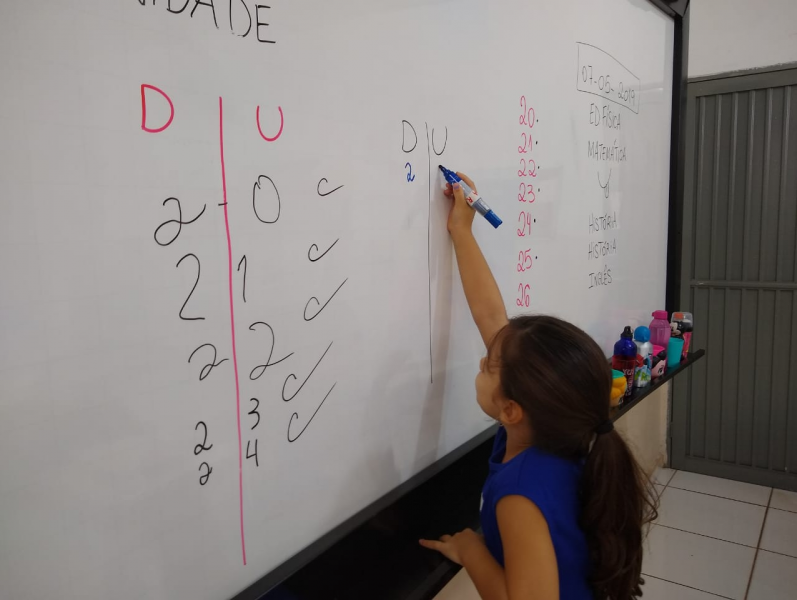 IDADE
D U
2 - 0
2 1
2 2
2 3
2 4
D U
2
20.
21.
22.
23.
24.
25.
26
07-05-2019
ED FÍSICA
MATEMÁTICA
HISTÓRIA
HISTÓRIA
INGLÊS